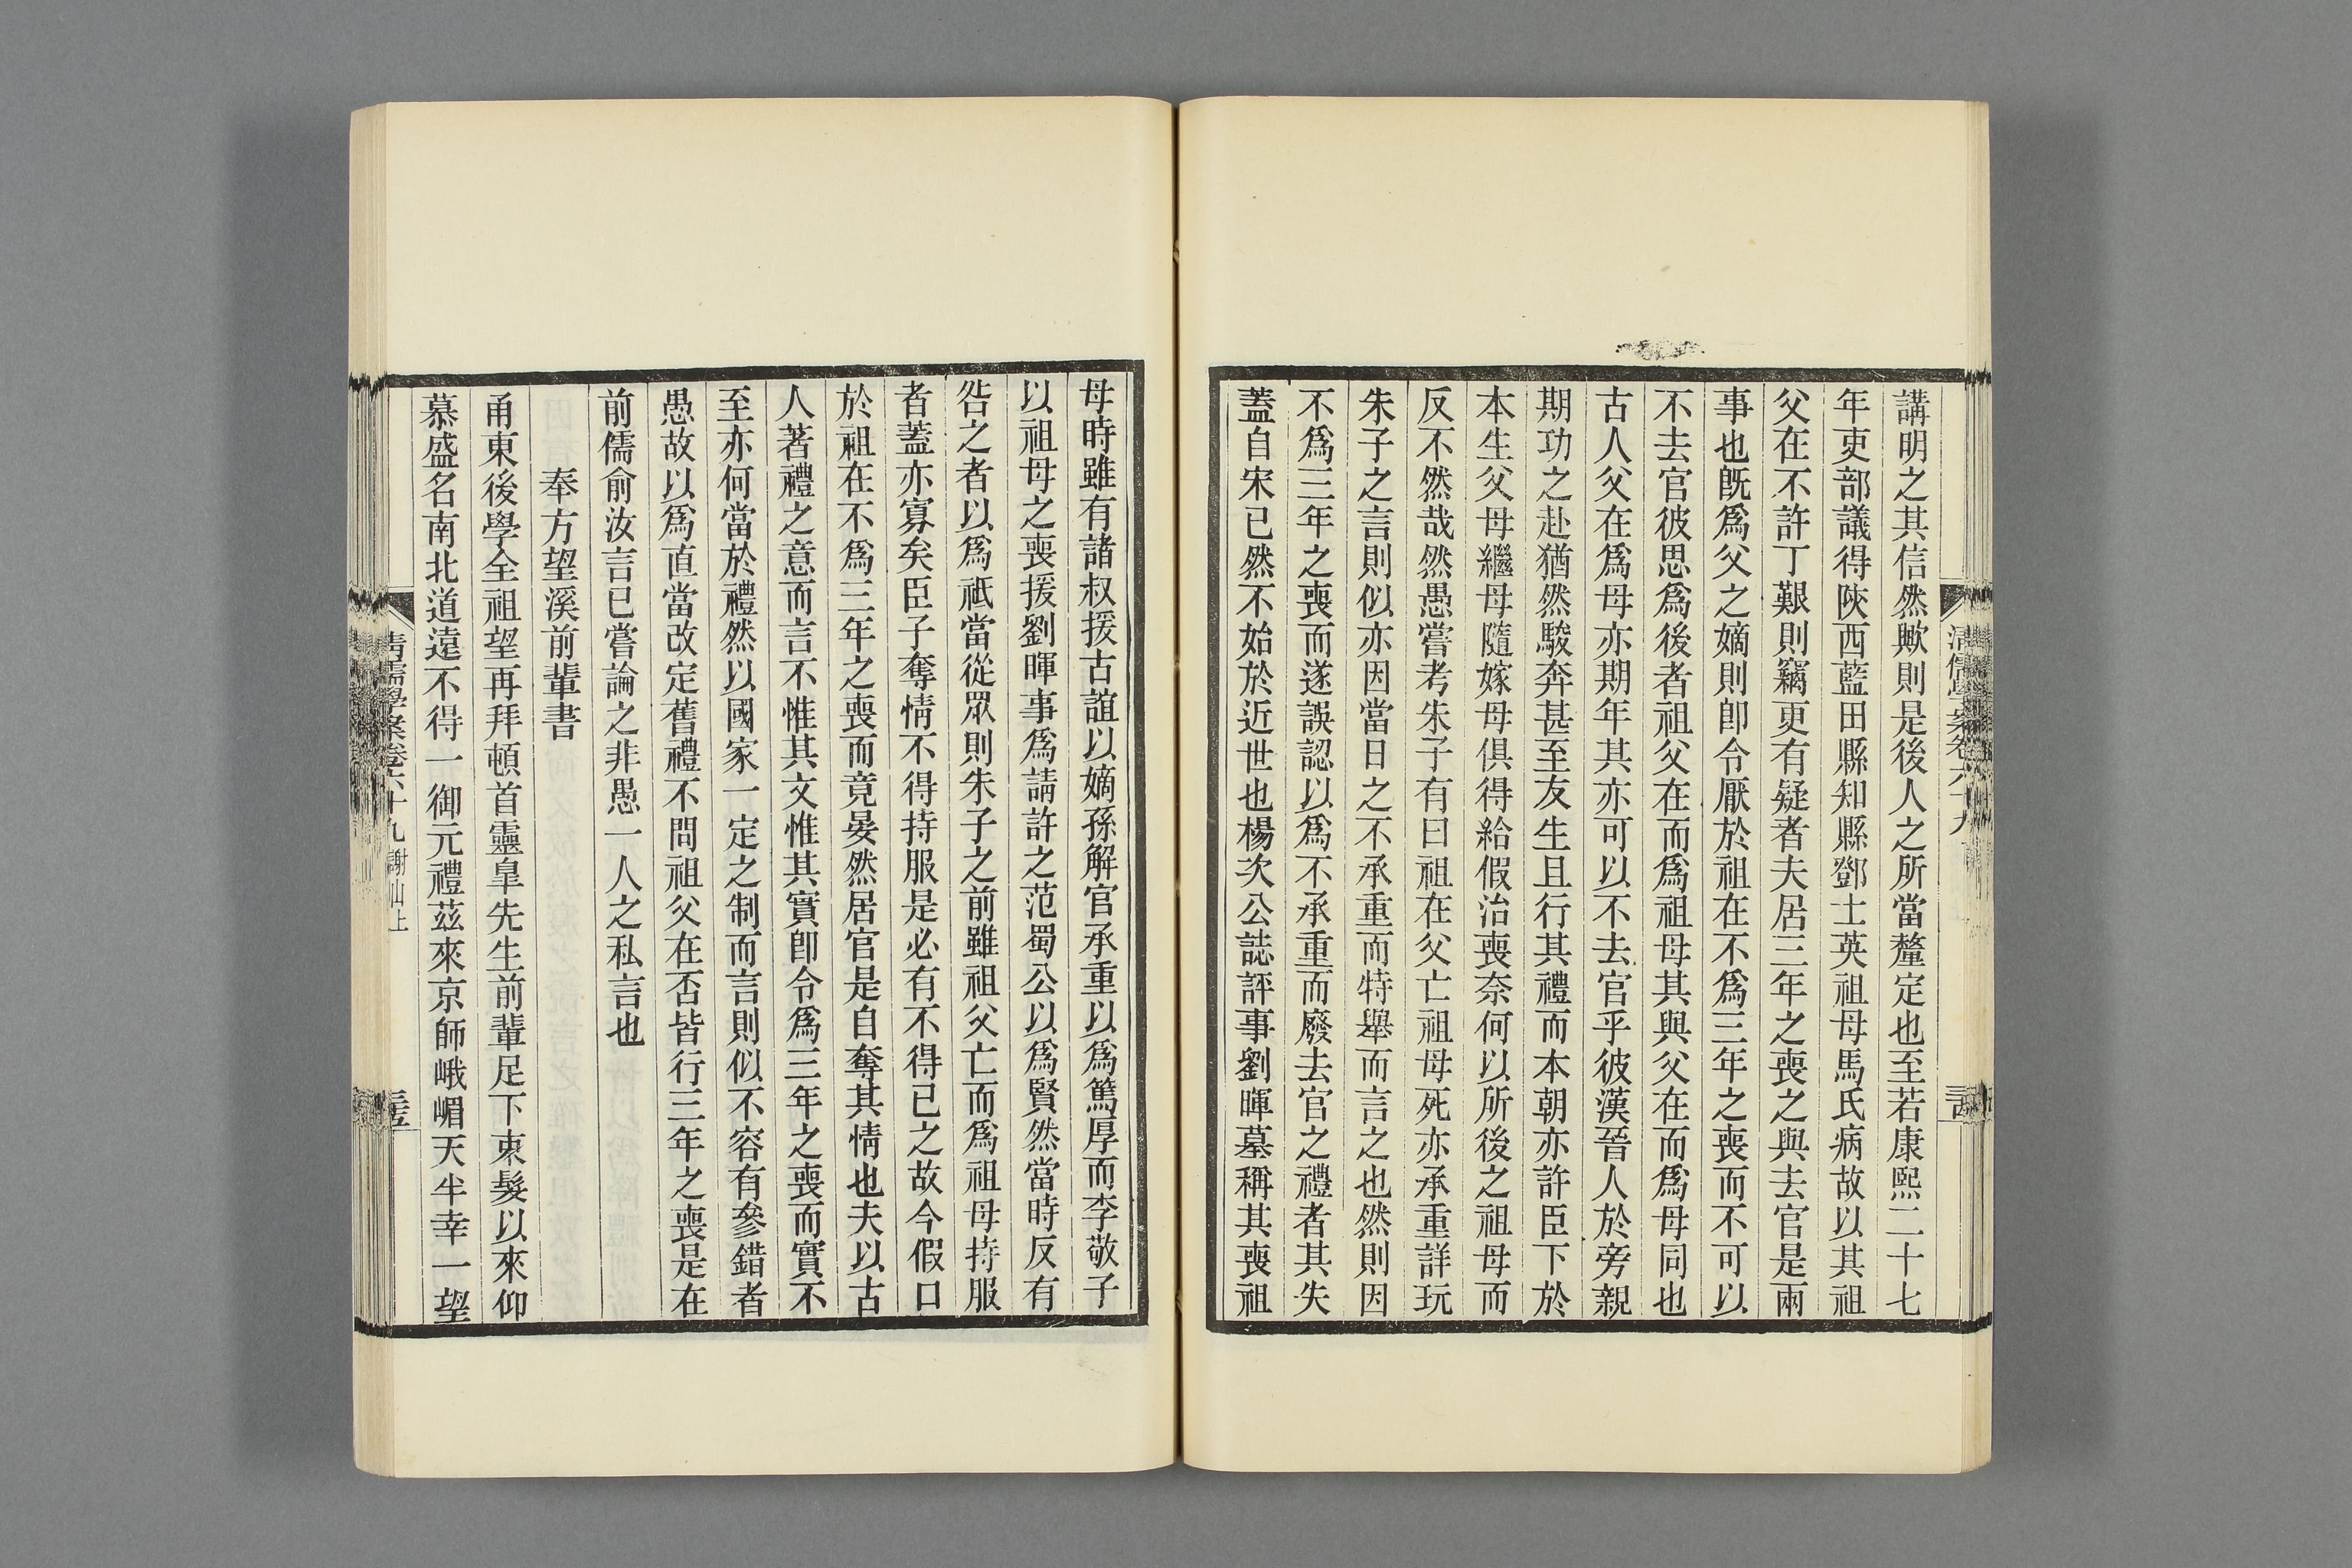 講明之其信然歟則是後人之所當釐定也至若康熙二十七
年吏部議得陝西藍田縣知縣鄧士英祖母馬氏病故以其祖
父在不許丁艱則竊更有疑者夫居三年之喪之與去官是兩
事也旣爲父之嫡則卽令厭於祖在不爲三年之喪而不可以
不去官彼思爲後者祖父在而爲祖母其與父在而爲母同也
古人父在爲母亦期年其亦可以不去官乎彼漢晉人於旁親
期功之赴猶然駿奔甚至友生且行其禮而本朝亦許臣下於
本生父母繼母隨嫁母俱得給假治喪奈何以所後之祖母而
反不然哉然愚嘗考朱子有曰祖在父亡祖母死亦承重詳玩
朱子之言則似亦因當日之不承重而特舉而言之也然則因
不爲三年之喪而遂誤認以爲不承重而廢去官之禮者其失
蓋自宋已然不始於近世也楊次公誌評事劉暉墓稱其喪祖
清儒學案卷六十九
母時雖有諸叔援古誼以嫡孫解官承重以爲篤厚而李敬子
以祖母之喪援劉暉事爲請許之范蜀公以爲賢然當時反有
咎之者以爲祇當從眾則朱子之前雖祖父亡而爲祖母持服
者蓋亦寡矣臣子奪情不得持服是必有不得已之故今假口
於祖在不爲三年之喪而竟晏然居官是自奪其情也夫以古
人著禮之意而言不惟其文惟其實卽令爲三年之喪而實不
至亦何當於禮然以國家一定之制而言則似不容有參錯者
愚故以爲直當改定舊禮不問祖父在否皆行三年之喪是在
前儒俞汝言已嘗論之非愚一人之私言也
奉方望溪前輩書
甬東後學全祖望再拜頓首靈皐先生前輩足下束髮以來仰
慕盛名南北道遠不得一御元禮茲來京師峨嵋天半幸一望
清儒學案卷六十九 謝山上